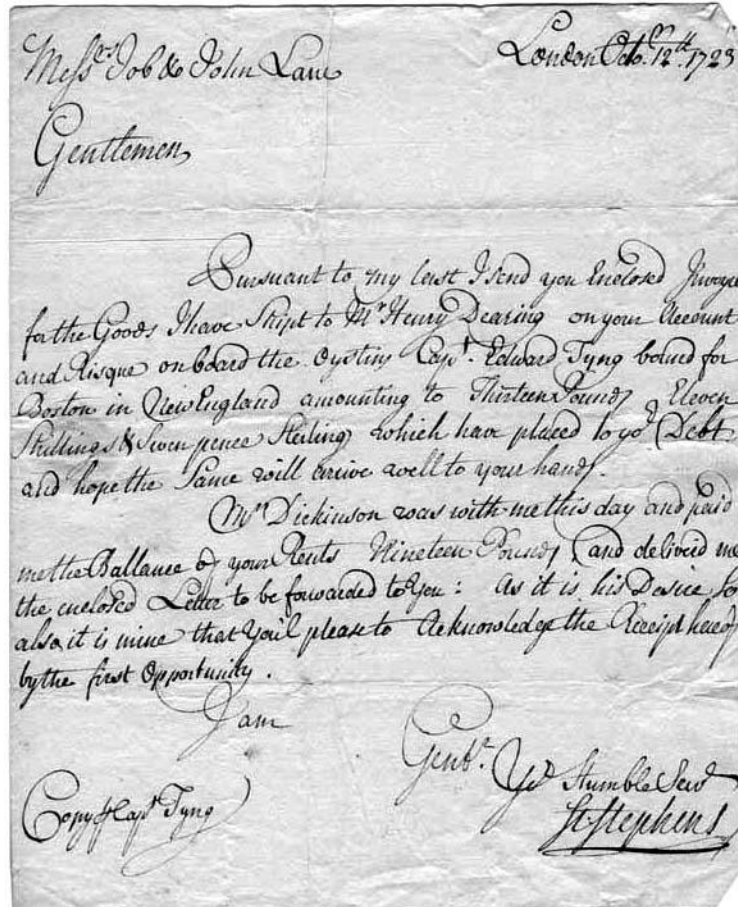 Mess.rs Job & John Lane
London Octo. 12th. 1723
Gentlemen
Pursuant to my last I send you Enclosed Invoyce
for the Goods I have Shipt to Mr Henry Dearing on your Account
and Risque on board the Oystin Capt. Edward Tyng bound for
Boston in New England amounting to Thirteen Pounds Eleven
Shillings & Seven pence Sterling which have placed to yor Debt
and hope the Same will arrive well to your hands.
Mr Dickinson was with me this day and paid
me the Ballance of your Rents Nineteen Pounds and deliverd me
the enclosed Letter to be forwarded to You: As it is his Desire So
also it is mine that You'l please to Acknowledge the Receipt hereof
by the first Opportunity.
I am
Gent.
Yor Humble Serv
Copy Capt Tyng
Stephens